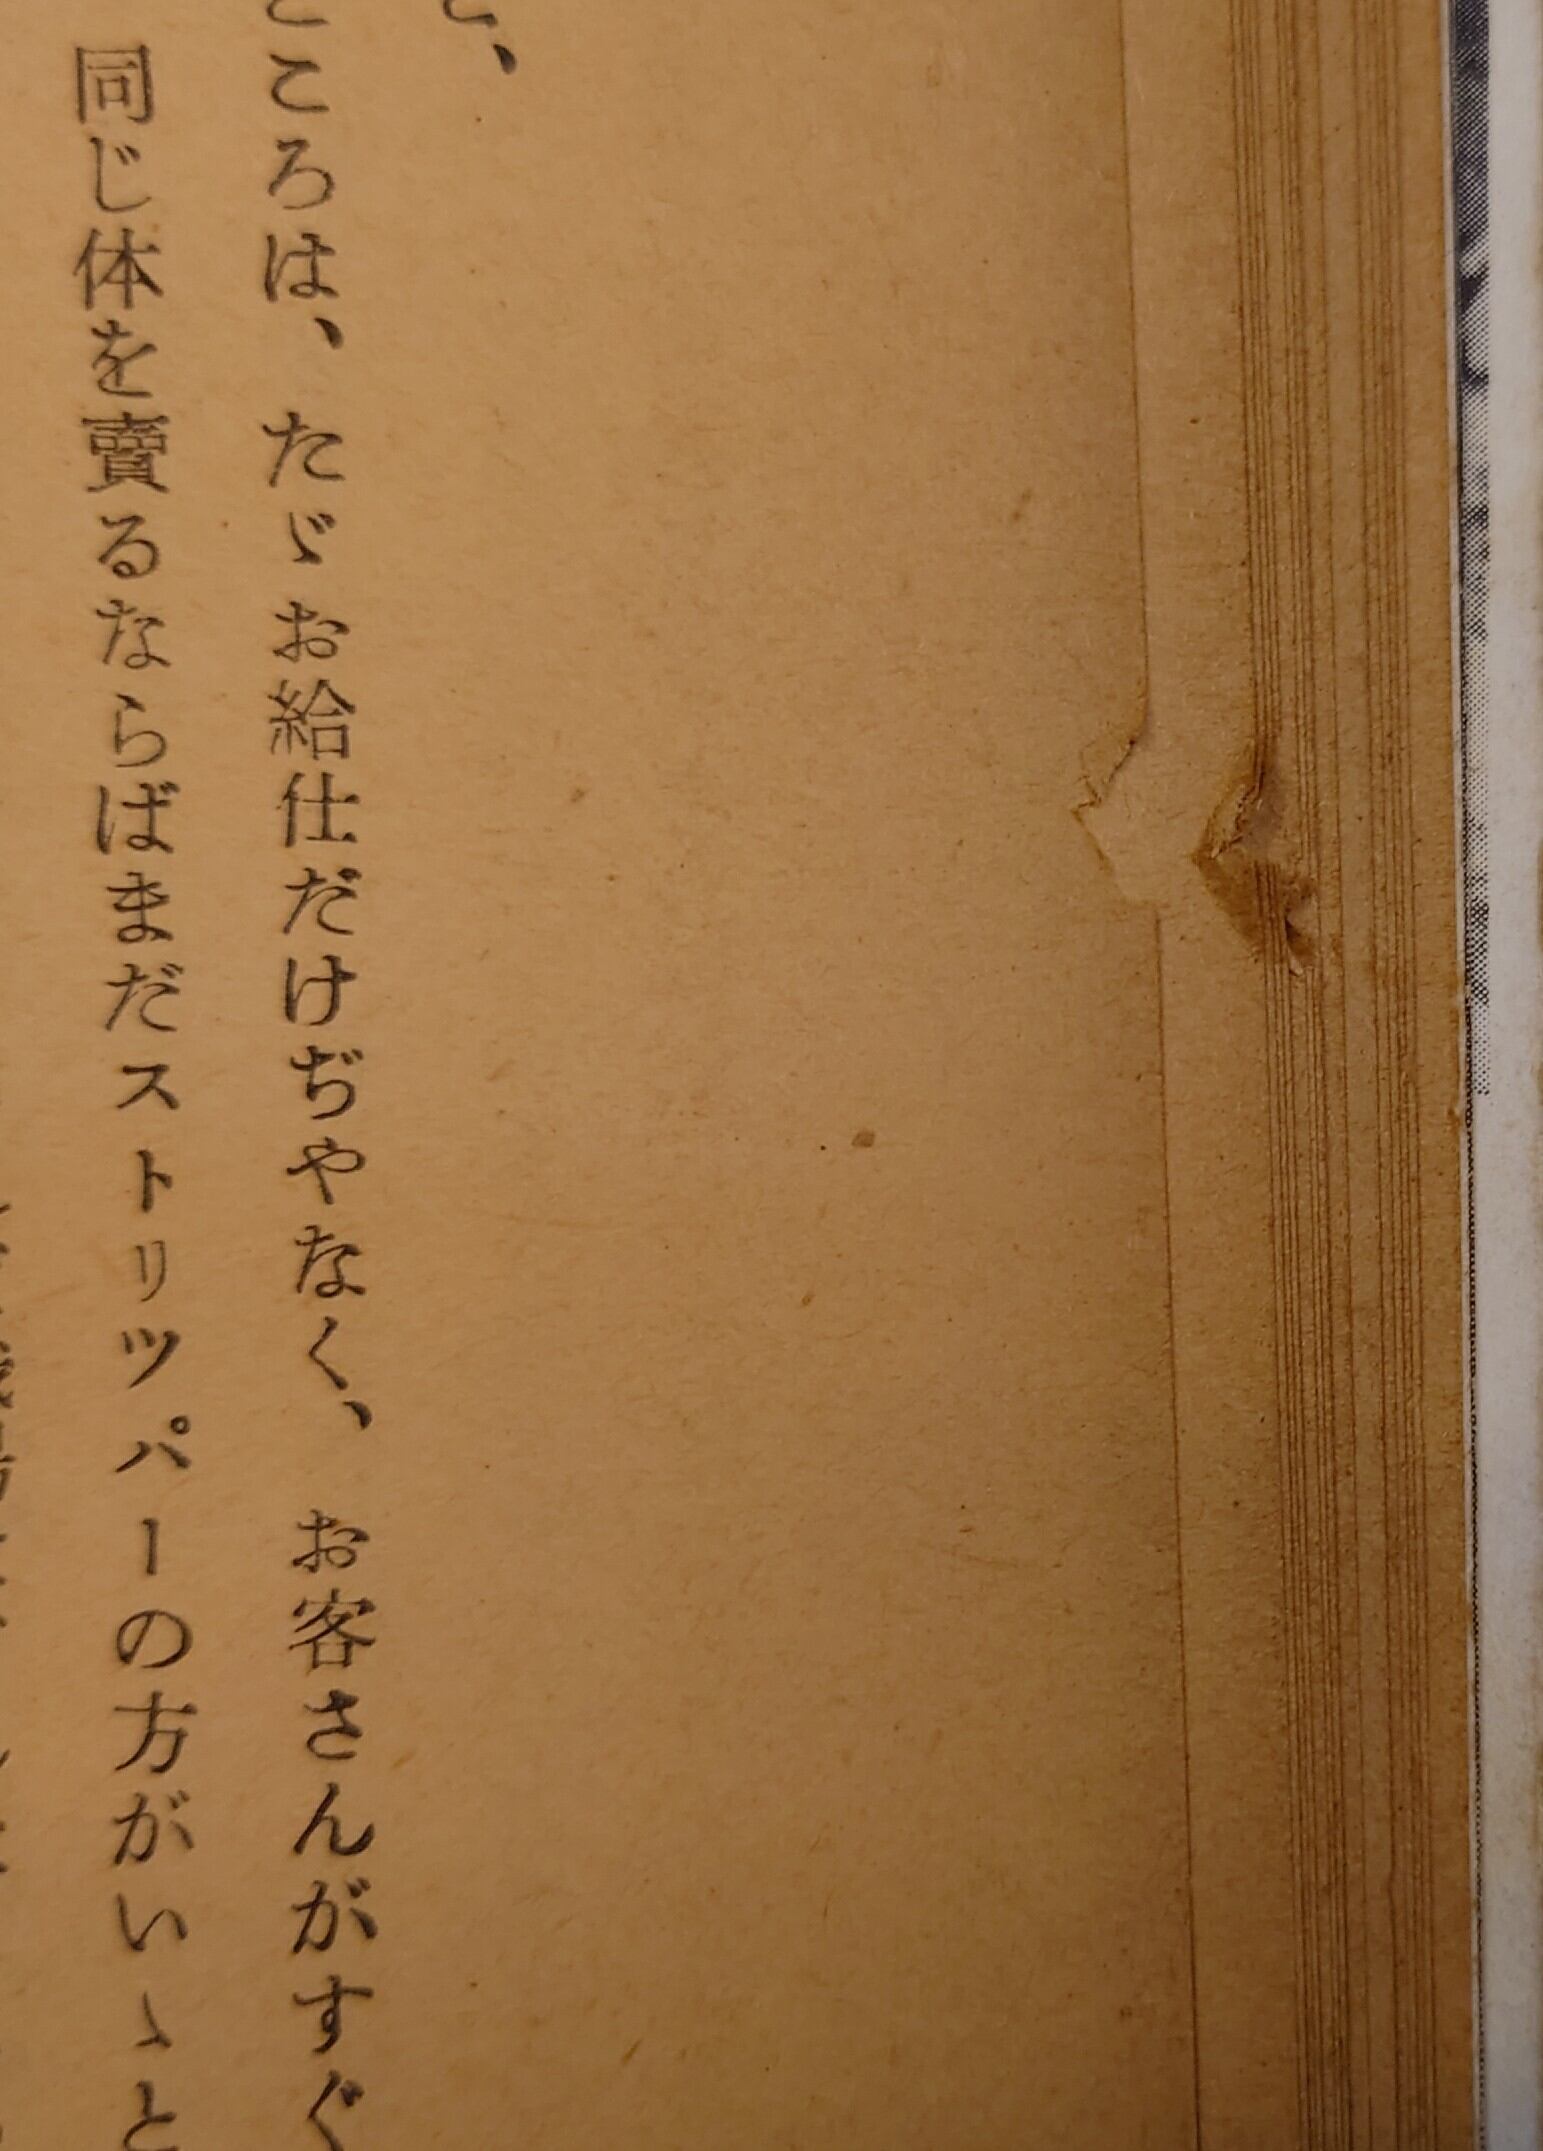 と、
ころは、たゞお給仕だけぢやなく、お客さんがすぐ
同じ体を賣るならばまだストリツパーの方がいゝと